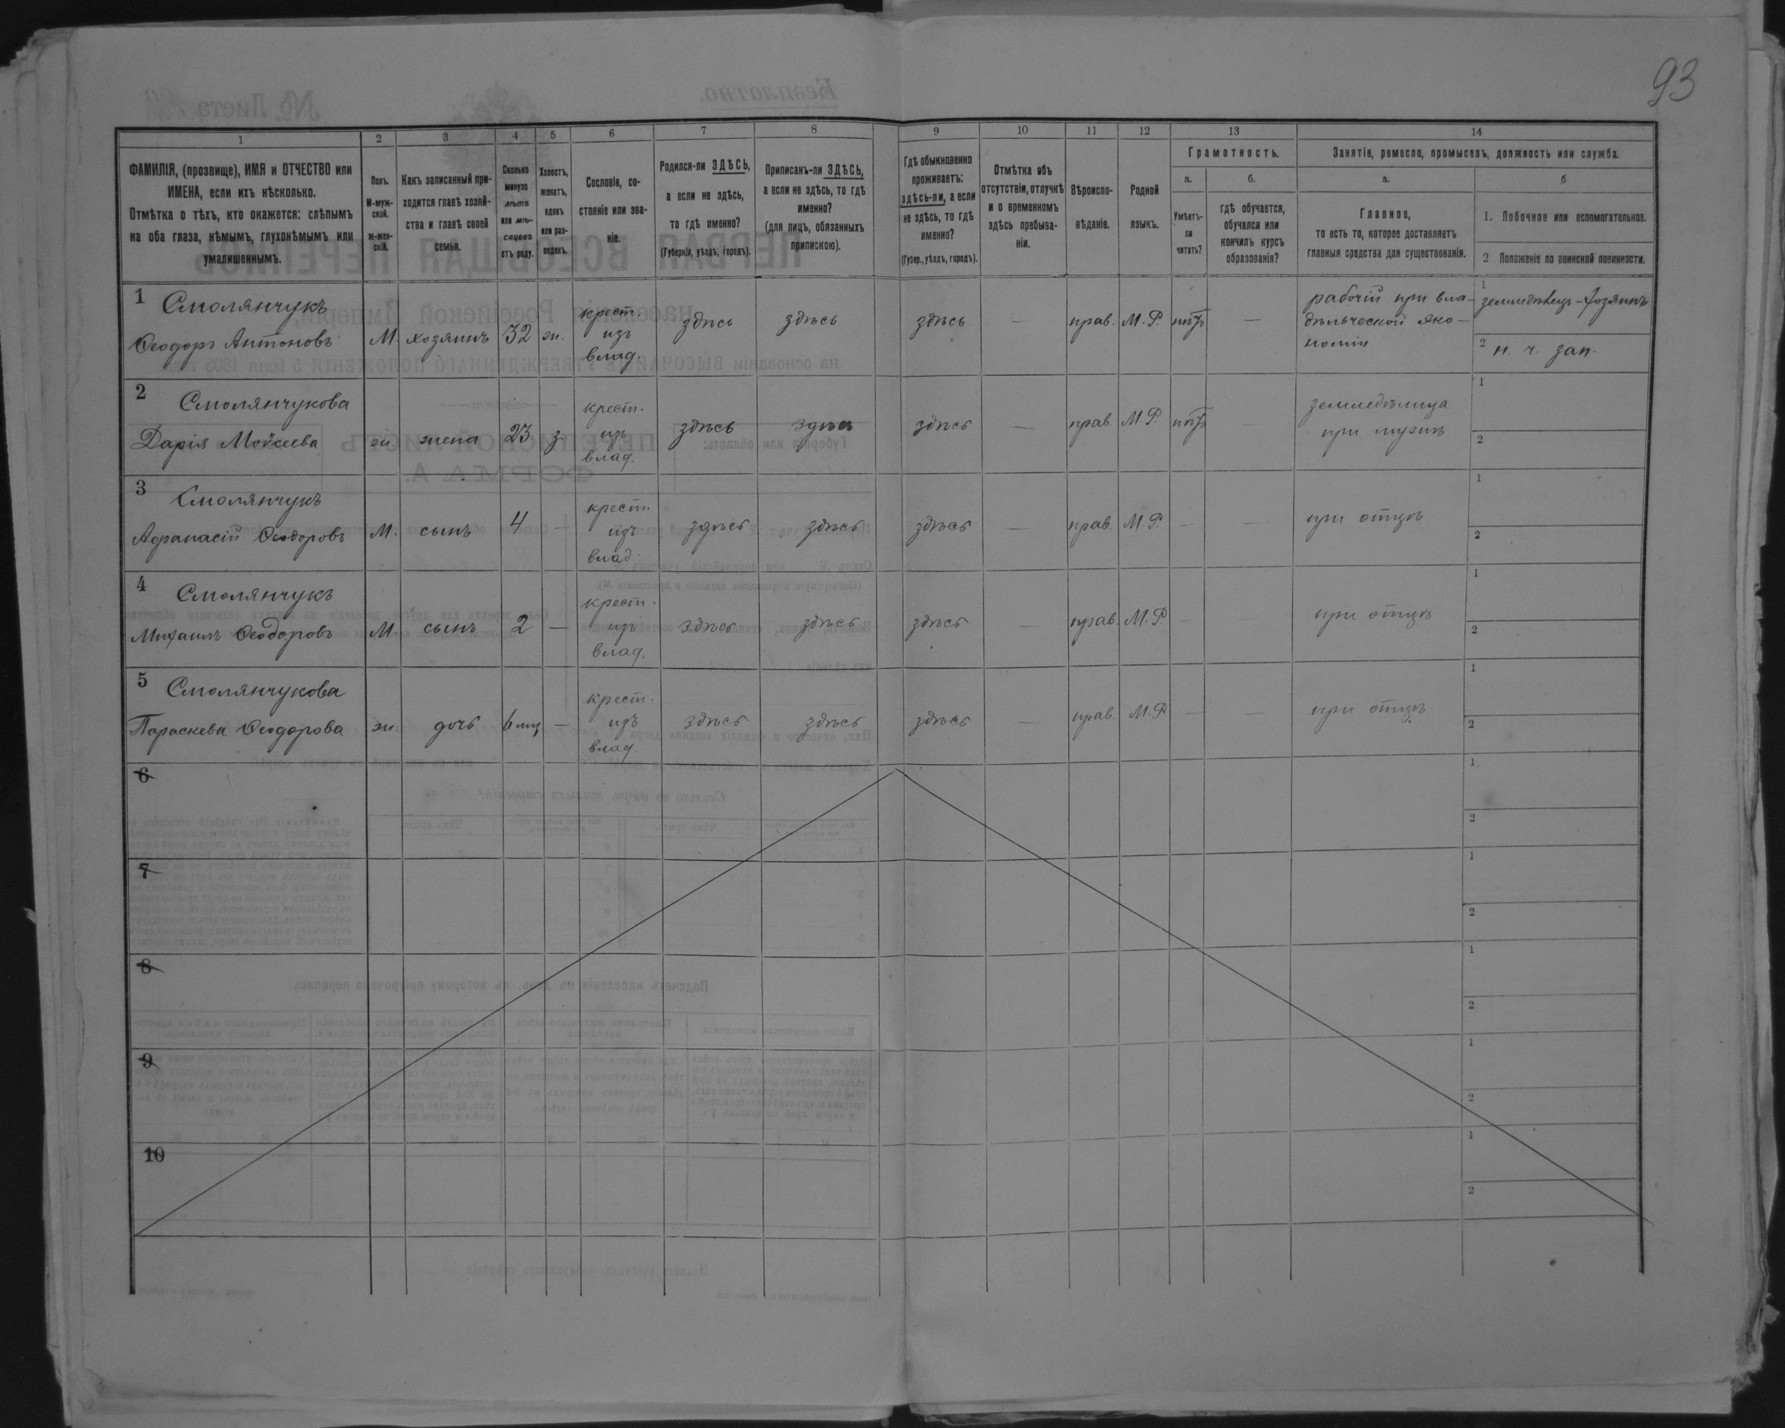 93
1
2
3
4
5
6
7
8
9
10
11
12
13
14
ФАМИЛІЯ, (прозвище), ИМЯ и ОТЧЕСТВО или
ИМЕНА, если ихъ нѣсколько.
Отмѣтка о тѣхъ, кто окажется: слѣпымъ
на оба глаза, нѣмымъ, глухонѣмымъ или
умалишеннымъ.
Полъ.
М-муж-
ской.
ж-жен-
скій.
Какъ записанный при-
ходится главѣ хозяй-
ства и главѣ своей
семьи.
Сколько
минуло
лѣтъ
или мѣ-
сяцевъ
отъ роду.
Холостъ,
женатъ,
вдовъ
или раз-
веденъ.
Сословіе, со-
стояніе или зва-
ніе.
Родился-ли ЗДѢСЬ,
а если не здѣсь,
то гдѣ именно?
(Губернія, уѣздъ, городъ).
Приписанъ-ли ЗДѢСЬ,
а если не здѣсь, то гдѣ
именно?
(для лицъ, обязанныхъ
припискою).
Гдѣ обыкновенно
проживаетъ:
здѣсь-ли, а если
не здѣсь, то гдѣ
именно?
(Губер., уѣздъ, городъ).
Отмѣтка объ
отсутствіи, отлучкѣ
и о временномъ
здѣсь пребыва-
ніи.
Вѣроиспо-
вѣданіе.
Родной
языкъ.
Грамотность.
а.
Умѣетъ-
ли
читать?
б.
гдѣ обучается,
обучался или
кончилъ курсъ
образованія?
Занятіе, ремесло, промыселъ, должность или служба.
а.
Главное,
то есть то, которое доставляетъ
главныя средства для существованія.
б
1. Побочное или вспомогательное.
2 Положеніе по воинской повинности.
1 Смолянчукъ
Ѳеодоръ Антоновъ
М. хозяинъ 32 ж.
крест.
изъ
влад.
здѣсь здѣсь здѣсь — прав. М.Р. нѣтъ —
рабочій при вла-
дѣльческой эко-
номіи
1 земледѣлецъ-хозяинъ
2 н. ч. зап.
2 Смолянчукова
Дарія Мойсеева
ж. жена 23 з.
крест.
изъ
влад.
здѣсь здѣсь здѣсь — прав. М.Р. нѣтъ —
земледѣлица
при мужѣ
1
2
3 Смолянчукъ
Афанасій Ѳеодоровъ
М. сынъ 4 —
крест.
изъ
влад.
здѣсь здѣсь здѣсь — прав. М.Р — —
при отцѣ
1
2
4 Смолянчукъ
Михаилъ Ѳеодоровъ
М. сынъ 2 —
крест.
изъ
влад.
здѣсь здѣсь здѣсь — прав. М.Р — —
при отцѣ
1
2
5 Смолянчукова
Параскева Ѳеодорова
ж. дочь 6 мц —
крест.
изъ
влад.
здѣсь здѣсь здѣсь — прав. М.Р — —
при отцѣ
1
2
6
1
2
7
1
2
8
1
2
9
1
2
10
1
2